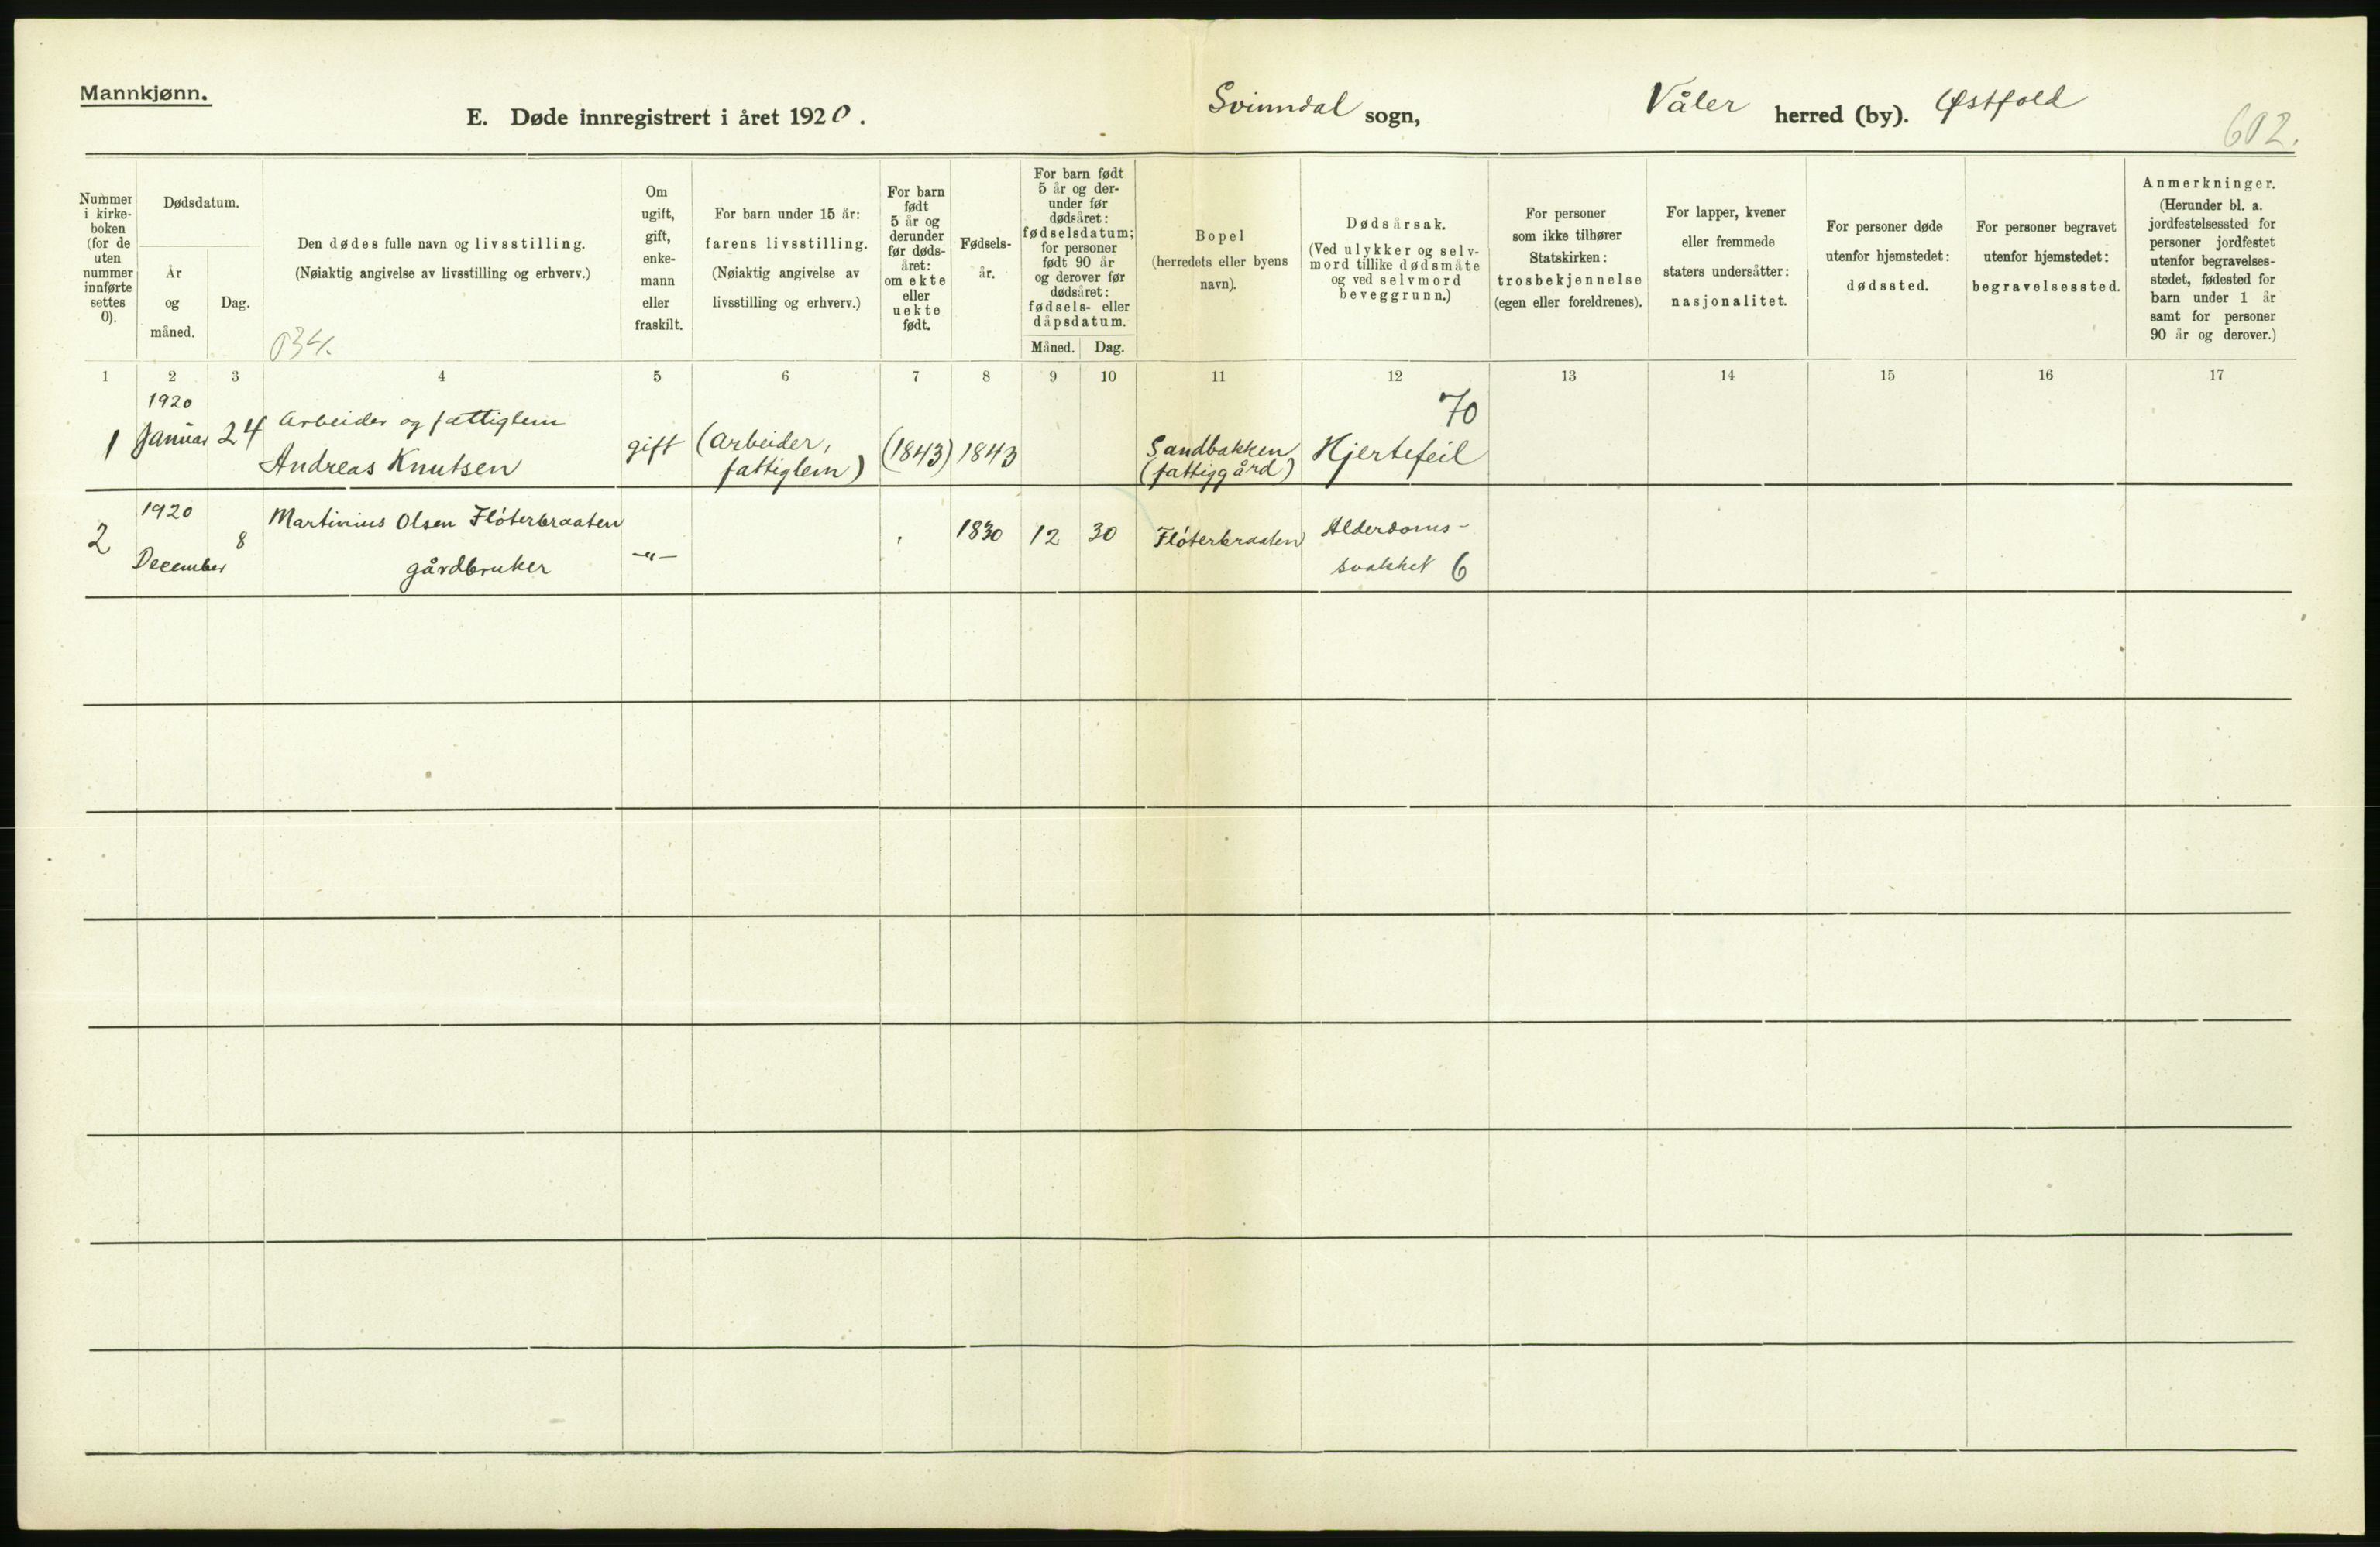 Mannkjønn.
E. Døde innregistrert i året 1920.
Svinndal sogn,
Våler herred (by). Østfold
602.
Nummer
i kirke-
boken
(for de
uten
nummer
innførte
settes
0).
Dødsdatum.
År
og
måned.
Dag.
Den dødes fulle navn og livsstilling.
(Nøiaktig angivelse av livsstilling og erhverv.)
034.
Om
ugift,
gift,
enke-
mann
eller
fraskilt.
For barn under 15 år:
farens livsstilling.
(Nøiaktig angivelse av
livsstilling og erhverv.)
For barn
født
5 år og
derunder
før døds-
året:
om ekte
eller
uekte
født.
Fødsels-
år.
For barn født
5 år og der-
under før
dødsåret:
fødselsdatum;
for personer
født 90 år
og derover før
dødsåret:
fødsels- eller
dåpsdatum.
Måned. Dag.
Bopel
(herredets eller byens
navn).
Dødsårsak.
(Ved ulykker og selv-
mord tillike dødsmåte
og ved selvmord
beveggrunn.)
For personer
som ikke tilhører
Statskirken:
trosbekjennelse
(egen eller foreldrenes).
For lapper, kvener
eller fremmede
staters undersåtter:
nasjonalitet.
For personer døde
utenfor hjemstedet:
dødssted.
For personer begravet
utenfor hjemstedet:
begravelsessted.
Anmerkninger.
(Herunder bl. a.
jordfestelsessted for
personer jordfestet
utenfor begravelses-
stedet, fødested for
barn under 1 år
samt for personer
90 år og derover.)
1 2 3 4 5 6 7 8 9 10 11 12 13 14 15 16 17
1
1920
Januar 24
Arbeider og fattiglem
Andreas Knutsen
gift
(Arbeider,
fattiglem)
(1843) 1843
Sandbakken
(fattiggård)
70
Hjertefeil
2
1920
December
8
Martinius Olsen Flöterbraaten
gårdbruker
-"-
1830 12 30
Flöterbraaten
Alderdoms-
svakhet 6